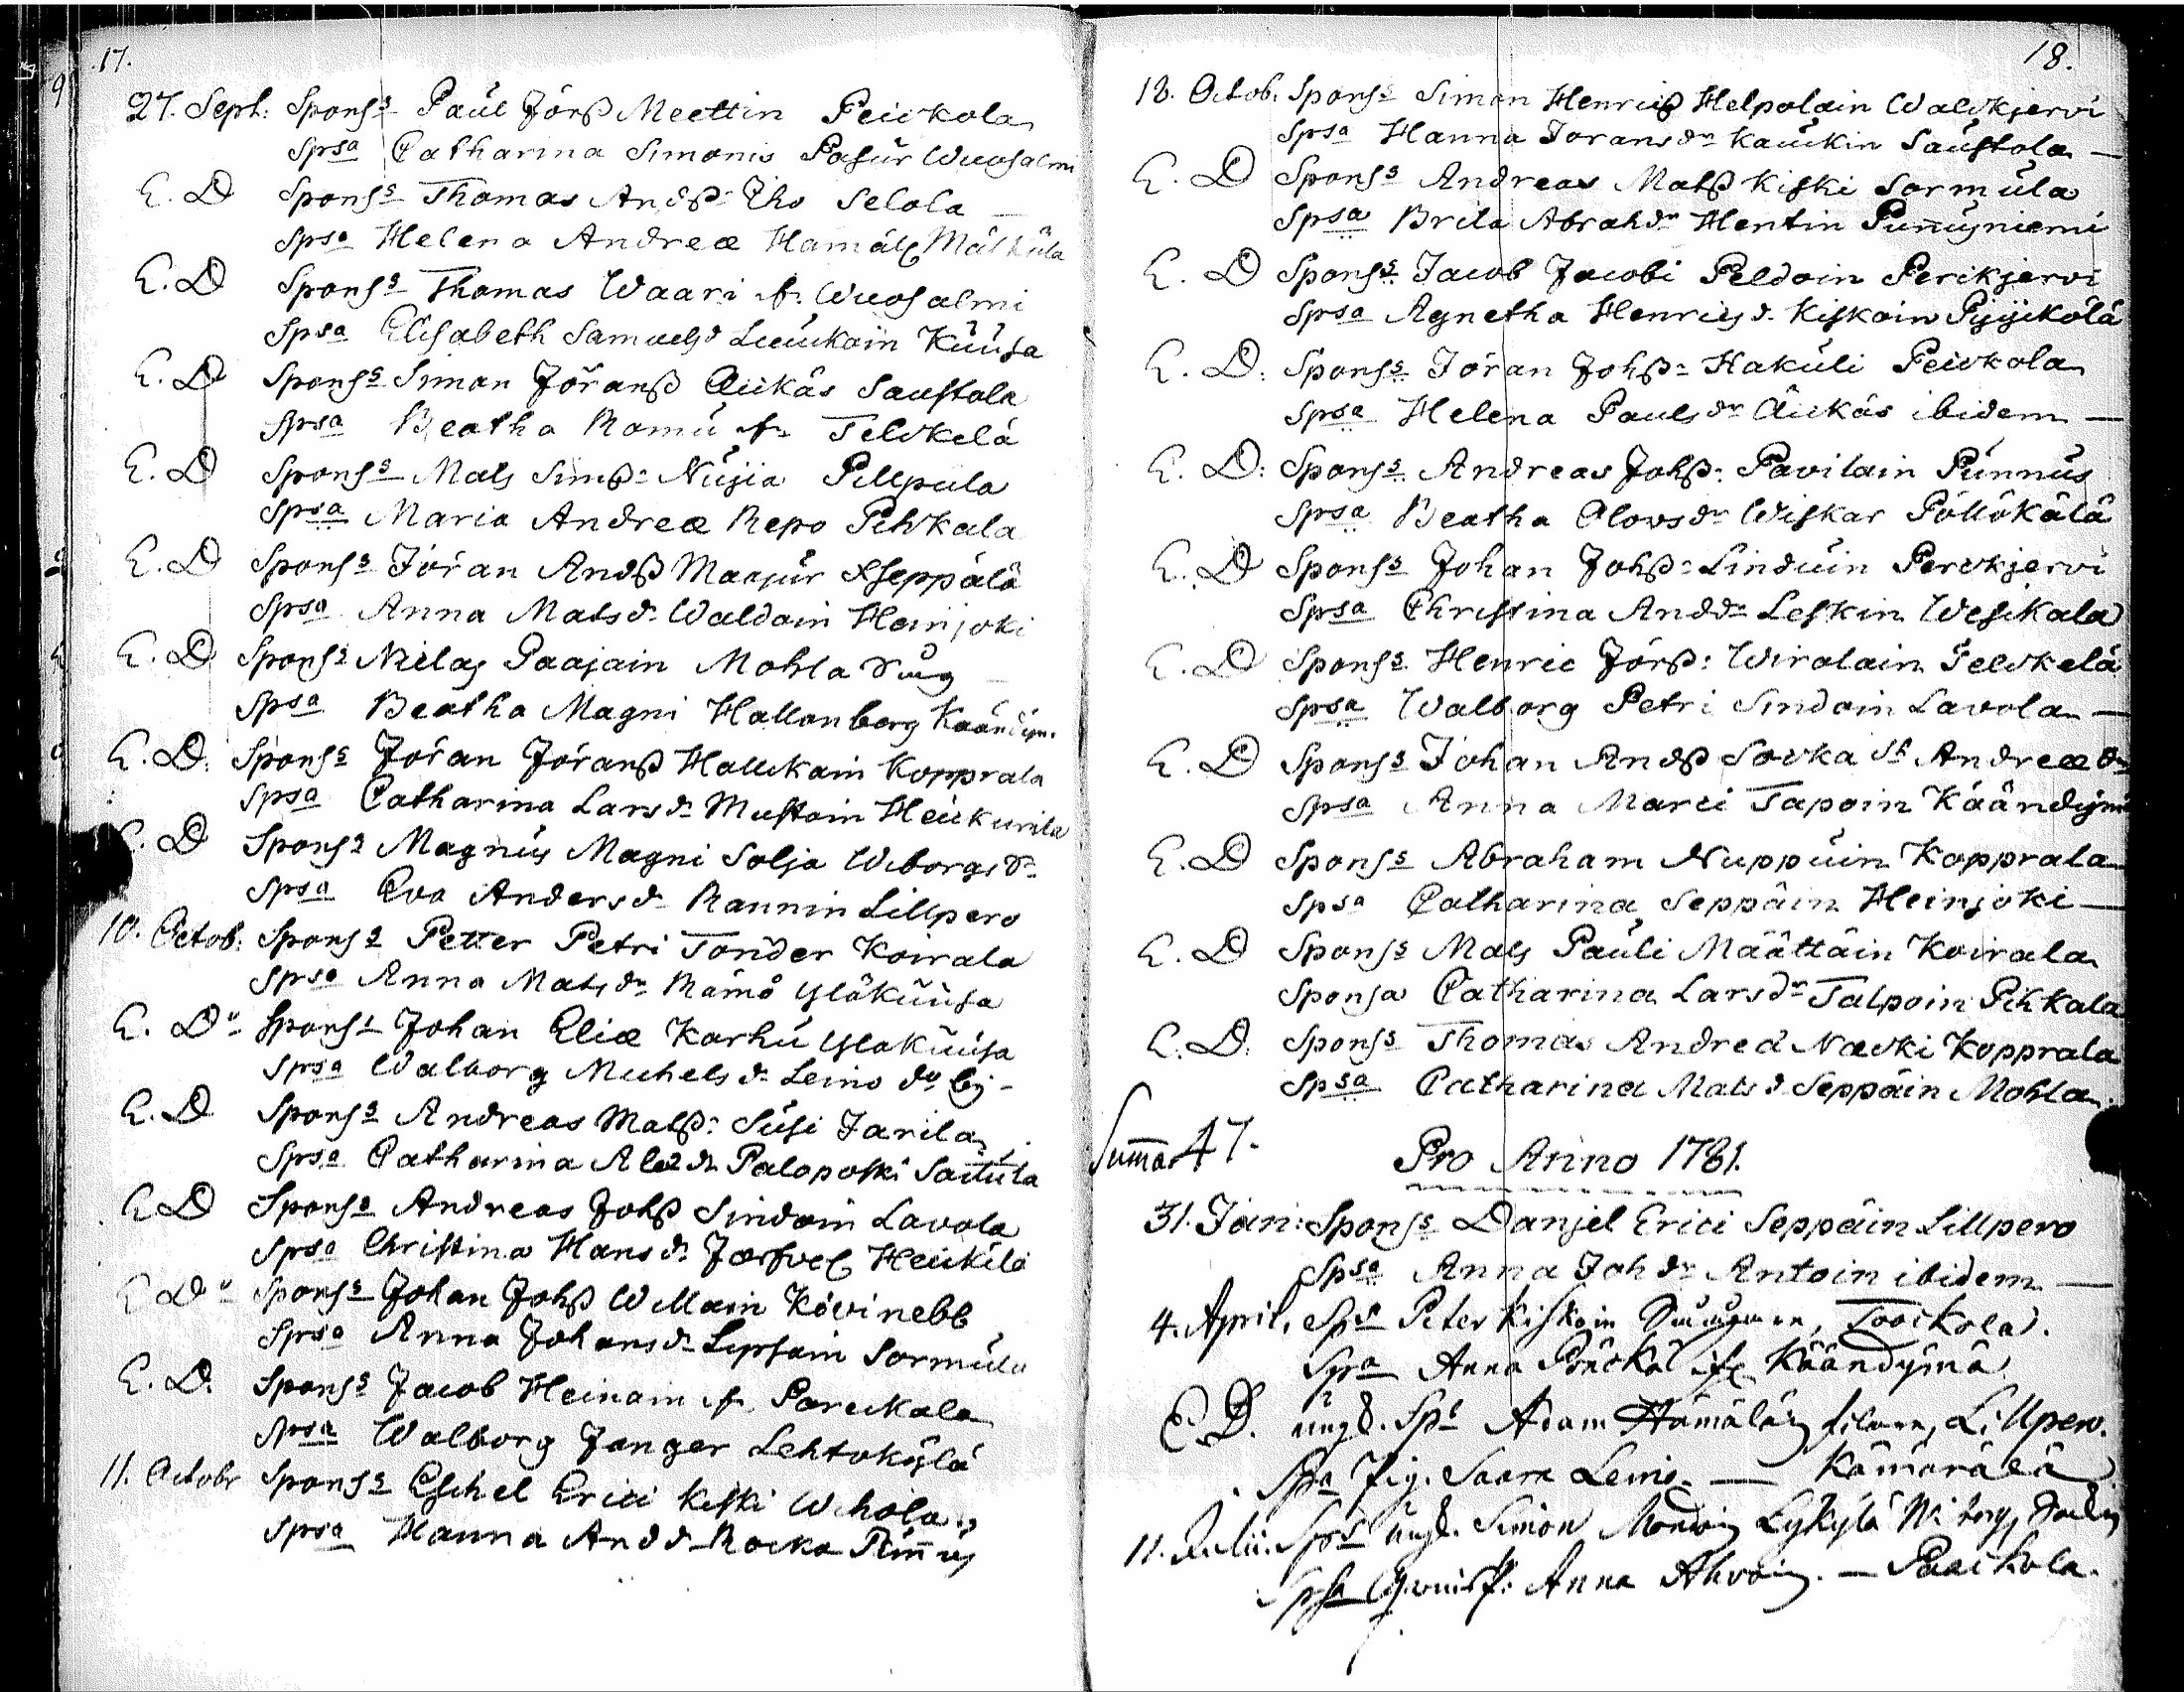 17.
27. Sept: Spons:s Paul Jörß Meettin Peickola
Spsa Catharina Simonis Pasur Wuosalmi
E. D Spons:s Thomas Andß Iho Selola
Spsa Helena Andreæ Hamäl: Mälkülä
E. D Spons:s Thomas Waari f. Wuosalmi
Spsa Elisabeth Samuelsd Luukain Kuusa
E. D Spons:s Simon Jöranß Äikäs Saustola
Spsa Beatha Ramu f. Telckelä
E. D Spons:s Mats Simß: Nuija Pillpula
Spsa Maria Andreæ Repo Pihkala
E. D Spons:s Jöran Andß Maajur Seppälä
Spsa Anna Matsd: Waldain Heinjoki
E. D Spons:s Nielas Paajain Mohla
Spsa Beatha Magni Hallonberg Käändym.
E. D: Spons:s Jöran Jöranß Hallikain Kopprala
Spsa Catharina Larsd: Mustoin Heickurila
E. D Spons:s Magnus Magni Solja Wiborgs
Spsa Eva Andersd: Rannin Lillpero
10. Octob: Spons:s Petter Petri Tonder Koirala
Spsa Anna Matsdr Rämö Yläkuusa
E. Do Spons:s Johan Eliæ Karhu Yläkuusa
Spsa Walborg Michelsd: Leino do by -
E. D Spons:s Andreas Matß: Susi Jarila
Spsa Catharina Alexdr Palaposki Saitula
E. D Spons:s Andreas Johß Sindoin Lavola
Spsa Christina Hansdr Jærfvel: Heickilä
E Do Spons:s Johan Johß Willain Kövinebb
Spsa Anna Johansdr Lipsain Sormula
E. D. Spons:s Jacob Heinain f. Pareickala
Spsa Walborg Janger Lehtokylä
11. Octobr Spons:s Eschel Erici Kiski Wihola
Spsa Hanna Andd Rocka Pun̄us
18.
12. Octob. Spons:s Simon Henricß Helpolain Walckjervi
Spsa Hanna Joransdr Kauckin Saustola —
E. D Spons:s Andreas Matß Kiski Sormula
Spsa Brita Abrahdr Hentin Pun̄uyniemi
E. D Spons:s Jacob Jacobi Peldoin Perckjervi
Spsa Agnetha Henricsd. Kiskoin Pyykölä
E. D: Spons:s Jöran Johß: Hakuli Peickola
Spsa Helena Paulsdr Äikäs ibidem —
E. D: Spons:s Andreas Johß: Pavilain Punnus
Spsa Beatha Olovsdr Wiskar Pöllökälä
E. D Spons:s Johan Johß: Linduin Perckjervi
Spsa Christina Anddr Leskin Wesikala
E. D Spons:s Henric Jörß: Wirolain Telckelä
Spsa Walborg Petri Sindoin Lavola —
E. D Spons:s Johan Andß Socka St Andreæ
Spsa Anna Marci Tapoin Käändymä
E. D Spons:s Abraham Nuppuin Kopprala
Spsa Catharina Seppäin Heinjoki —
E. D Spons:s Mats Pauli Määttäin Koirala
Sponsa Catharina Larsdr Talpoin Pihkala
E. D. Spons:s Thomas Andreæ Nacki Kopprala
Spsa Catharina Matsd Seppäin Mohla.
Sum̄a 47.
Pro Anno 1781.
31. Jan: Spons:s Danjel Erici Seppäin Lillpero
Spsa Anna Johdr Antoin ibidem —
4. April, Sps Peter Kiskoin, Toockola.
Spsa Anna Pönckä Käändymä
E. D. ungd. Sps Adam Hämäläin, Lillpero.
Spa Pig. Saara Leino — Kämärälä
11. Julii. Sps ungd. Simon Lykylä Wiborgs
Spsa Anna Ahvoin. — Paackola.